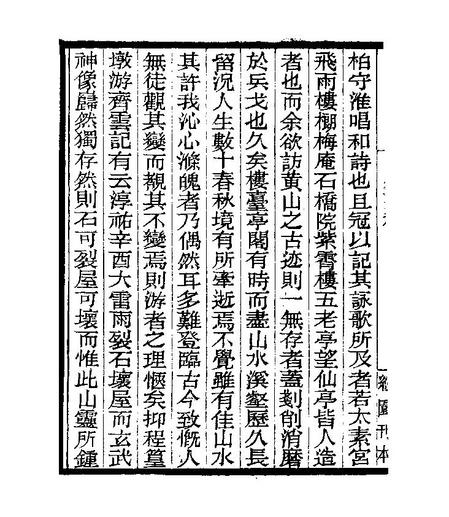 柏守淮唱和詩也且冠以記其詠歌所及者若太素宮
飛雨樓棚梅庵石橋院紫霄樓五老亭望仙亭皆人造
者也而余欲訪黃山之古迹則一無存者蓋剗削消磨
於兵戈也久矣樓臺亭閣有時而盡山水溪壑歷久長
留況人生數十春秋境有所牽逝焉不覺雖有佳山水
其許我沁心滌魄者乃偶然耳多難登臨古今致慨人
無徒觀其變而覩其不變焉則游者之理愜矣抑程篁
墩游齊雲記有云淳祐辛酉大雷雨裂石壞屋而玄武
神像巋然獨存然則石可裂屋可壞而惟此山靈所鍾